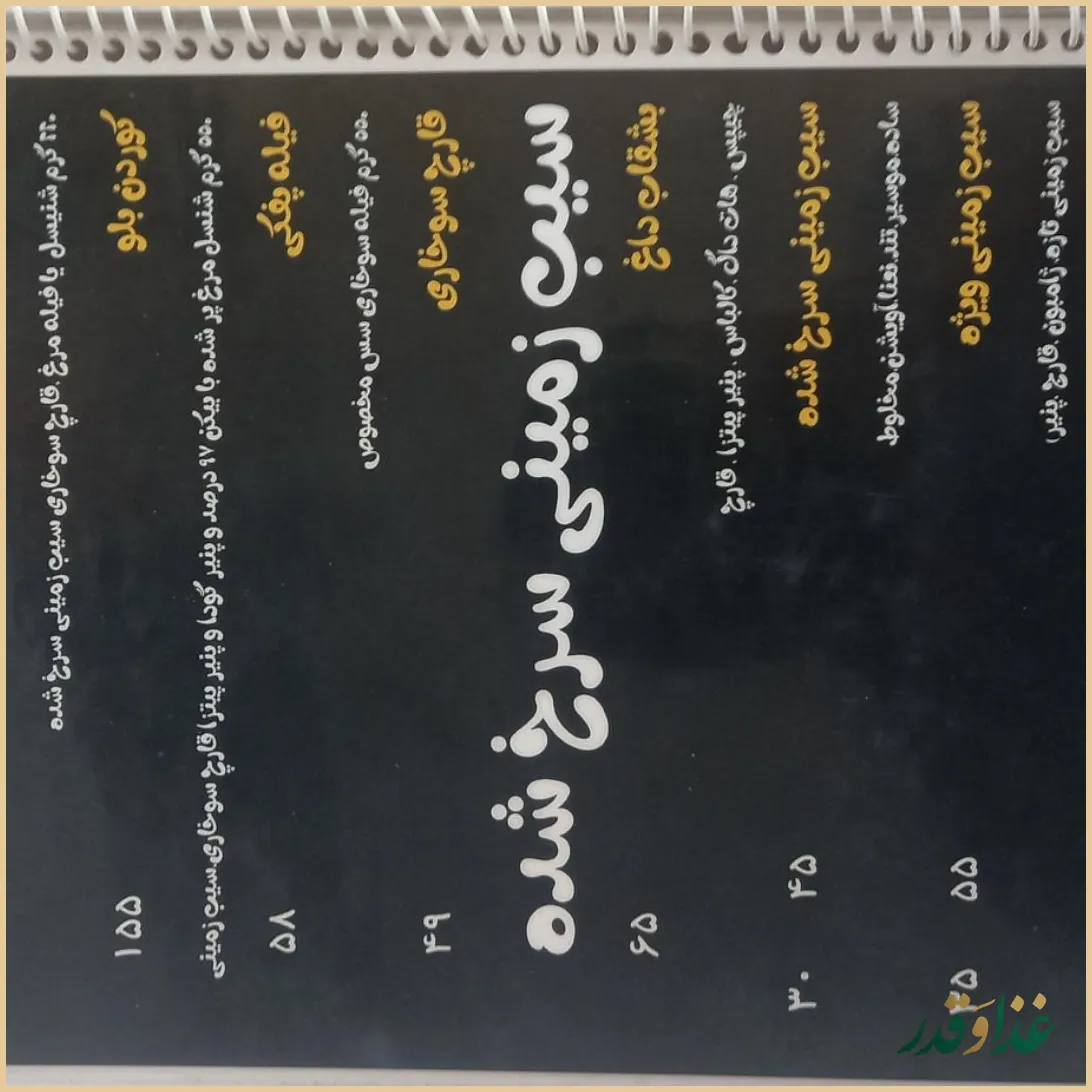 گرم شنیسل یا فیله مرغ، قارچ سوخاری، سیب زمینی سرخ شده
کوردن بلو ۱۵۵
گرم شنسل مرغ پر شده با ۹۸ درصد و پنیر گودا و پنیر پیتزا، قارچ سوخاری، سیب زمینی
فیله پفکی ۵۸
گرم فیله سوخاری، سس مخصوص
قارچ سوخاری ۴۹
سیب زمینی سرخ شده
بشقاب داغ ۶۵
هات داگ، کالباس، پنیر پیتزا، قارچ
سیب زمینی سرخ شده ۴۵ ۳۰
سیب زمینی ویژه ۵۵ ۳۵
سیب زمینی، ژامبون، قارچ، پنیر
غذا و قدر